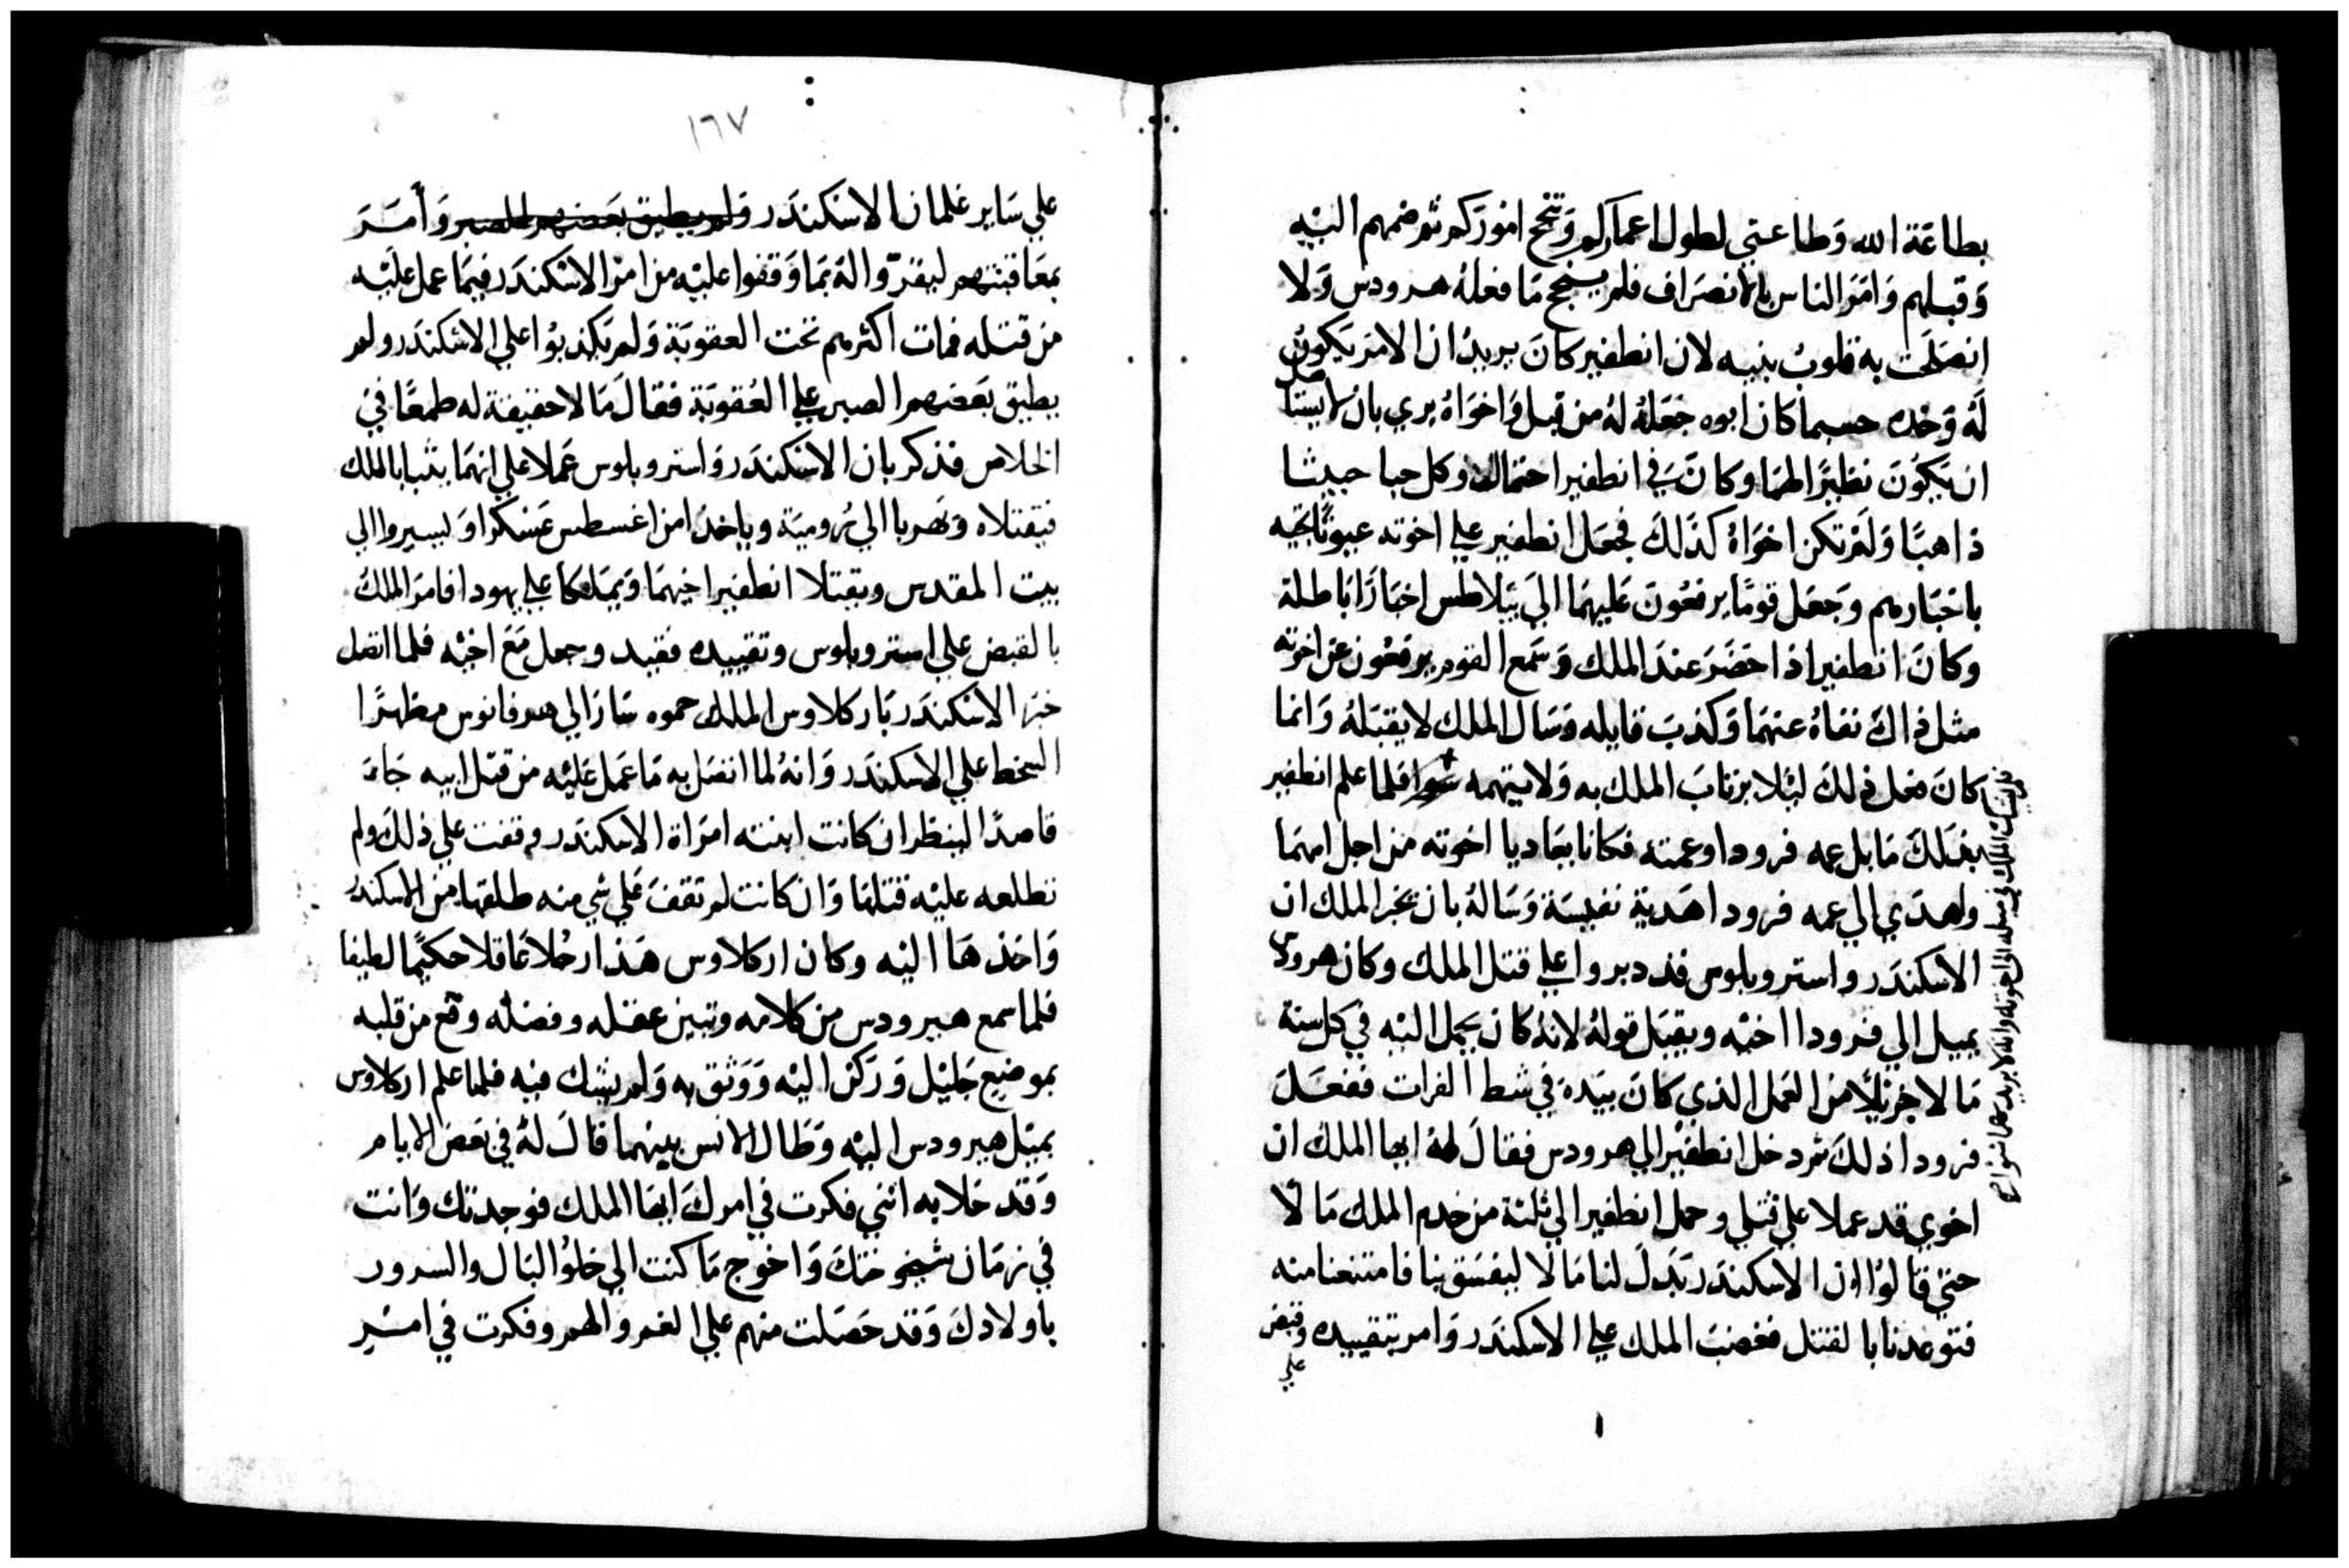 بطاعة الله وطاعتي لطول اعماركم وتنجح اموركم ثم ضمهم اليه
وقبلهم وامر الناس بالانصراف فلم ينجح ما فعله هرودس ولا
انصلحت به قلوب بنيه لان انطفير كان يريد ان الامر يكون
له وحده حسبما كان ابوه جعله له من قبل واخواه يري بان لا يستاهل
ان يكون نظيرا لهما وكان في انطفير احتمالا وكل حيا خبيثا
ذاهبا ولم تكن اخواه كذلك فجعل انطفير علي اخوته عيونا تجيه
باخبارهم وجعل قوما يرفعون عليهما الي بيلاطس اخبارا باطلة
وكان انطفير اذا حضر عند الملك وسمع القوم يرفعون عن اخوته
مثل ذاك نفاه عنهما وكذب قايله وسال الملك لا يقبله وانما
كان فعل ذلك ليلا يرتاب الملك به ولا يتهمه سوا فلما علم انطفير
بفلك مابل عمه فرودا وعمته فكانا يعاديا اخوته من اجل امهما
واهدي الي عمه فرودا هدية نفيسة وساله بان يخبر الملك ان
الاسكندر واستروبلوس قد دبروا علي قتل الملك وكان هرودس
يميل الي فرودا اخيه ويقبل قوله لانه كان يحمل اليه في كل سنة
مالا جزيلا من العمل الذي كان بيده في شط الفرات ففعل
فرودا ذلك ثم دخل انطفير الي هرودس فقال له ايها الملك ان
اخوي قد عملا علي قتلي وحمل انطفير الي ثلثة من خدم الملك مالا
حتي قالوا ان الاسكندر بذل لنا مالا ليفسق بنا فامتنعنا منه
فتوعدنا بالقتل فغضب الملك علي الاسكندر وامر بتقييده وقبض
علي
١٦٧
علي ساير غلمان الاسكندر ولم يطيق بعضهم الصبر وأمر
بمعاقبتهم ليقروا له بما وقفوا عليه من امر الاسكندر فيما عمل عليه
من قتله فمات اكثرهم تحت العقوبة ولم يكذبوا علي الاسكندر ولم
يطيق بعضهم الصبر علي العقوبة فقال ما لا حقيقة له طمعا في
الخلاص فذكر بان الاسكندر واستروبلوس عملا علي انهما يثبا بالملك
فيقتلاه ويهربا الي رومية وياخدا من اغسطس عسكرا وليسيروا الي
بيت المقدس ويقتلا انطفير اخيهما ويملكا علي يهودا فامر الملك
بالقبض علي استروبلوس وتقييده فقيد وجعل مع اخيه فلما اتصل
خبر الاسكندر بارکلاوس الملك حموه سار الي هرفانوس مظهرا
السخط علي الاسكندر وانه لما اتصل به ما عمل عليه من قتل ابيه جاء
قاصدا لينظر ان كانت ابنته امراة الاسكندر وقفت علي ذلك ولم
تطلعه عليه قتلها وان كانت لم تقف علي شي منه طلقها من الاسكندر
واخذها اليه وكان اركلاوس هذا رجلا عاقلا حكيما لطيفا
فلما سمع هيرودس من كلامه وتبين عقله وفضله وقع من قلبه
بموضع جليل وركن اليه ووثق به ولم يشك فيه فلما علم اركلاوس
بميل هيرودس اليه وطال الانس بينهما قال له في بعض الايام
وقد خلا به انني فكرت في امرك ايها الملك فوجدتك وانت
في زمان شيخوختك واخوج ما كنت الي خلو البال والسرور
باولادك وقد حصلت منهم علي الغم والهم وفكرت في امر